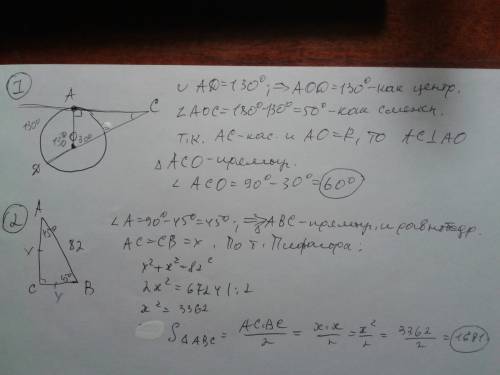 1
A
C
130°
130°
30°
O
D
∪ AD=130°; ⇒ AOD=130°-как центр.
∠AOC=180°-130°=50°-как смежн.
т.к. AC-кас. и AO=R, то AC⊥AO
△ACO-прямоуг.
∠ACO=90°-30°=60°
2
A
45°
82
x
C
45°
B
∠A=90°-45°=45°; ⇒ ABC-прямоуг. и равнобедр.
AC=CB=x. По т. Пифагора:
x²+x²=82²
2x²=6724 | :2
x²=3362
S△ABC = AC·BC/2 = x·x/2 = x²/2 = 3362/2 = 1681